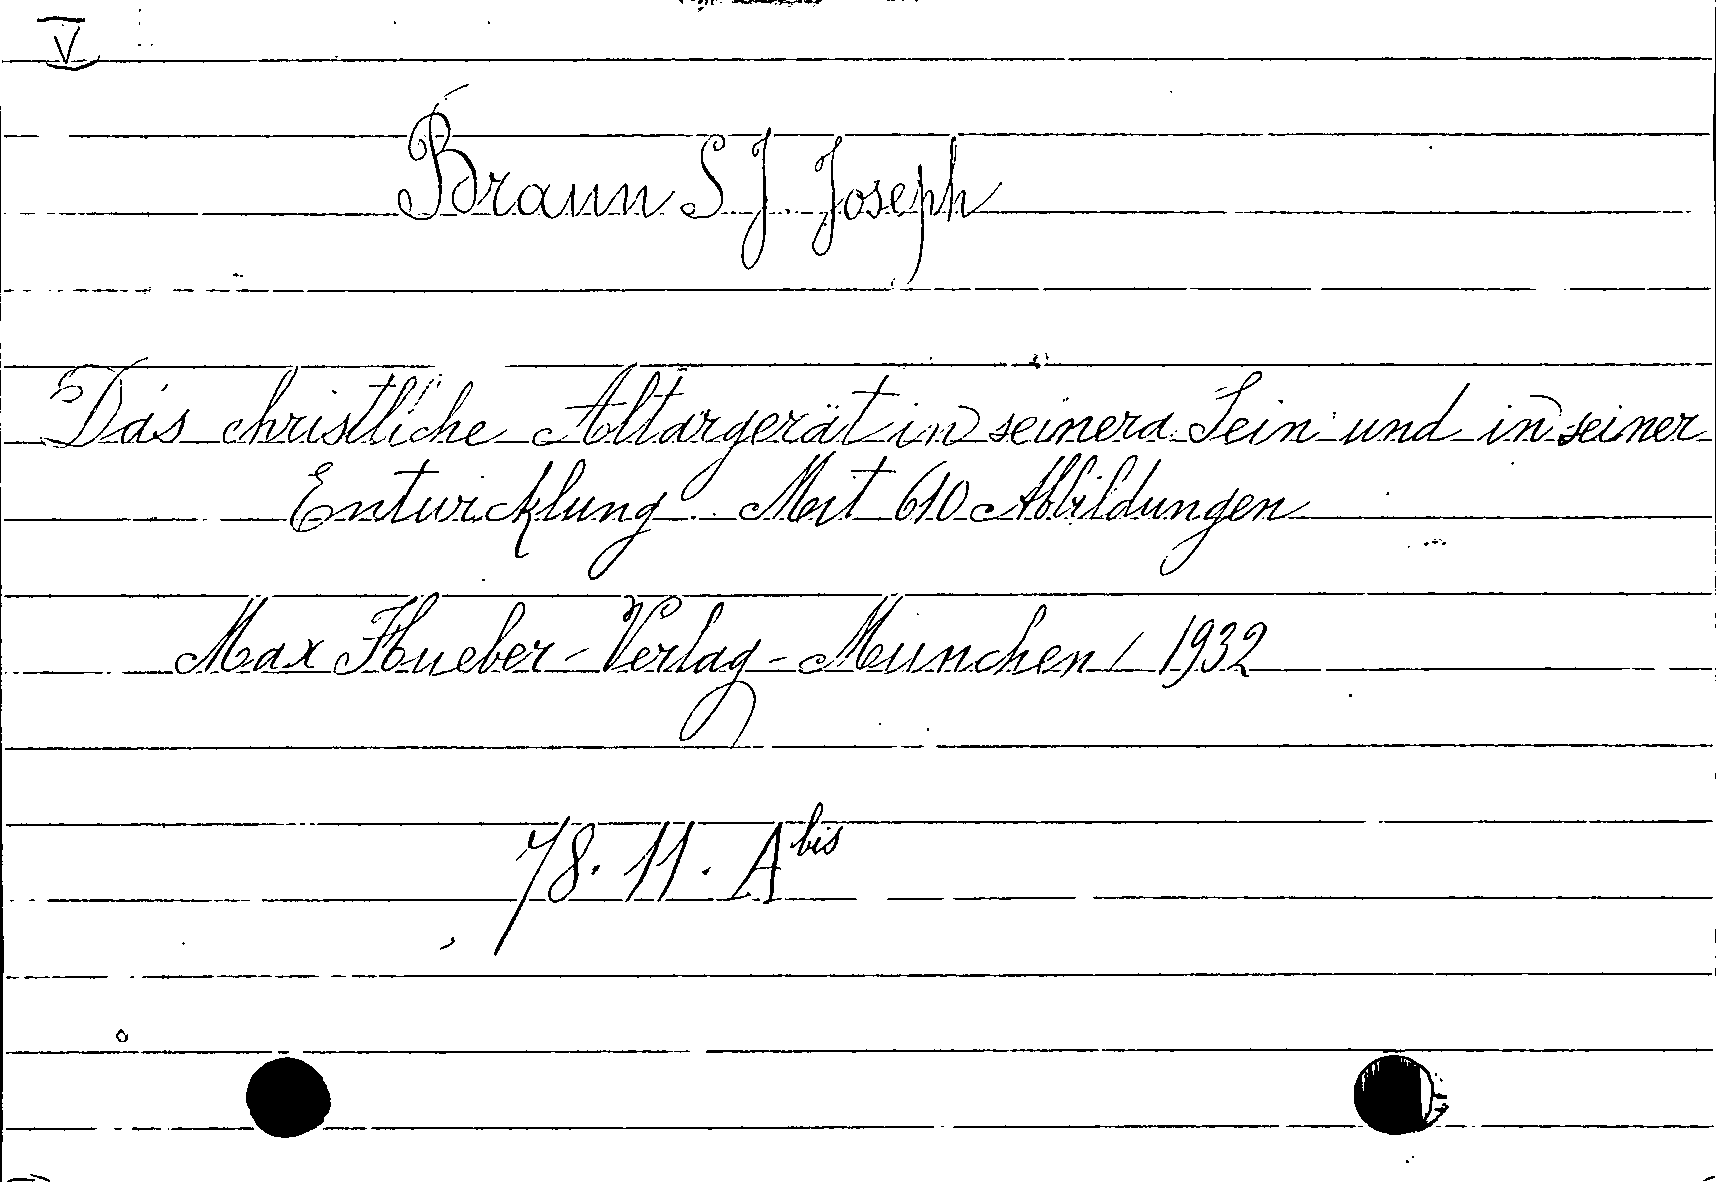 V
Braun S J. Joseph
Das christliche Altargerät in seinera Sein und in seiner
Entwicklung. Mit 610 Abbildungen
Max Hueber-Verlag-München / 1932
78. 11. A bis